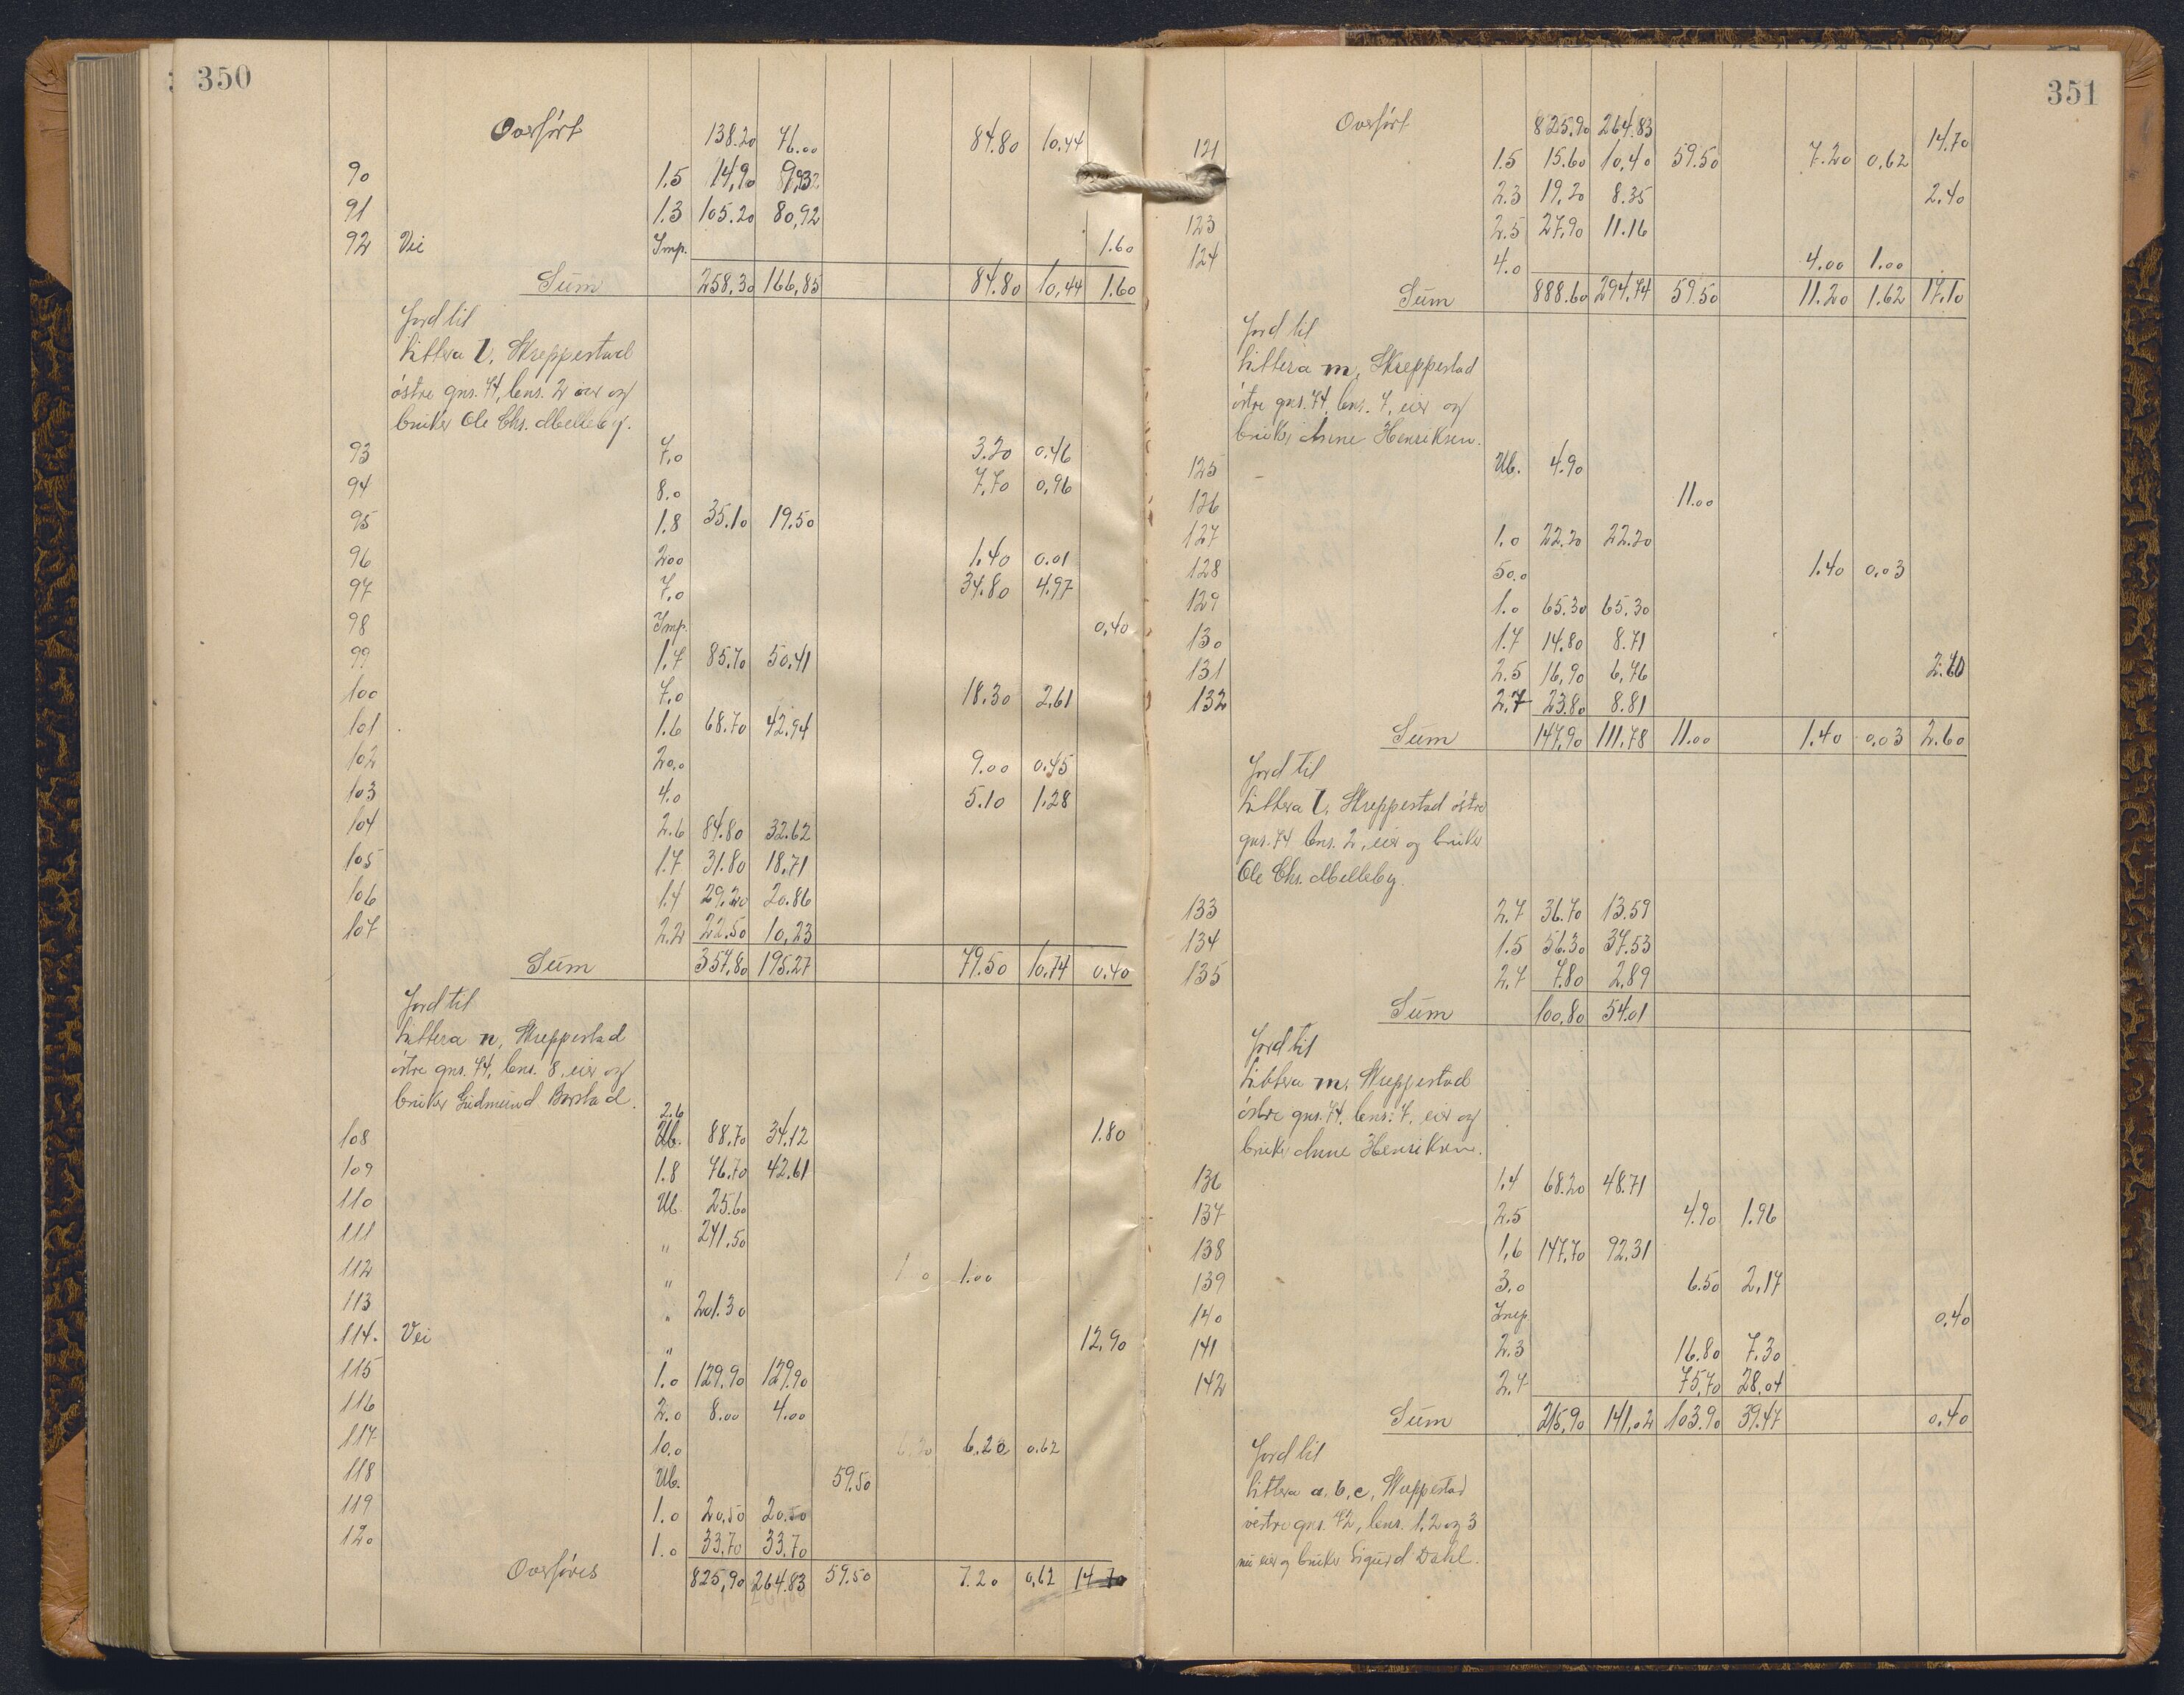 350
Overført 138.20 76.00 84.80 10.44
90 1.5 14,90 9,932
91 1.3 105.20 80,92
92 Vei Imp. 1.60
Sum 258,30 166,85 84.80 10,44 1.60
Jord til
Littera l, Skreppestad
østre gns. 74, bns. 2 eier og
bruker Ole Chs. Melleby.
93 7,0 3.20 0.46
94 8.0 7,70 0,96
95 1.8 35.10 19.50
96 200 1.40 0.01
97 7.0 34.80 4.97
98 Imp. 0,40
99 1.7 85.70 50,41
100 7,0 18.30 2,61
101 1.6 68.70 42.94
102 20,0 9.00 0.45
103 4.0 5.10 1,28
104 2.6 84.80 32.62
105 1.7 31.80 18,71
106 1.4 29,20 20.86
107 2.2 22.50 10,23
Sum 357,80 195.27 79.50 10.74 0.40
Jord til
Littera n, Skreppestad
østre gns. 74, bns. 8, eier og
bruker Gudmund Borstad.
2.6
108 Ub. 88.70 34,12 1.80
109 1.8 76.70 42.61
110 Ub 25.60
111 " 241.50
112 " 1.00
113 " 201.30
114. Vei " 12,90
115 1.0 129,90 129.90
116 2.0 8.00 4.00
117 10.0 6.20 6.20 0.62
118 Ub. 59.50
119 1.0 20,50 20.50
120 1.0 33.70 33.70
Overføres 825,90 264.83 59.50 7.20 0,62 14.70
351
Overført 825,90 264.83 14.70
121 1.5 15.60 10,40 59.50 7.20 0,62
2.3 19,20 8.35 2.40
123 2.5 27,90 11.16
124 4.0 4.00 1.00
Sum 888.60 294,74 59.50 11.20 1.62 17.10
Jord til
Littera m, Skreppestad
østre gns. 74, bns. 7, eier og
bruker Anne Henriksen.
125 Ub. 4.90
126 11.00
127 1.0 22.20 22.20
128 50.0 1.40 0,03
129 1.0 65.30 65.30
130 1.7 14.80 8.71
131 2.5 16,90 6,76 2.60
132 2.7 23.80 8.81
Sum 147,90 111.78 11.00 1.40 0,03 2.60
Jord til
Littera l, Skreppestad østre
gns. 74 bns. 2, eier og bruker
Ole Chs. Melleby.
133 2.7 36.70 13.59
134 1.5 56.30 37.53
135 2.7 7.80 2.89
Sum 100,80 54.01
Jord til
Littera m, Skreppestad
østre gns. 74, bns. 7, eier og
bruker Anne Henriksen.
136 1.4 68.20 48.71
137 2.5 4.90 1.96
138 1,6 147,70 92,31
139 3.0 6.50 2,17
140 Imp 0,40
141 2.3 16.80 7.30
142 2.7 75,70 28,04
Sum 215,90 141,02 103.90 39.47 0,40
Jord til
Littera a, b, c, Skreppestad
vestre gns. 72, bns. 1, 2 og 3
nu eier og bruker Sigurd Dahl.